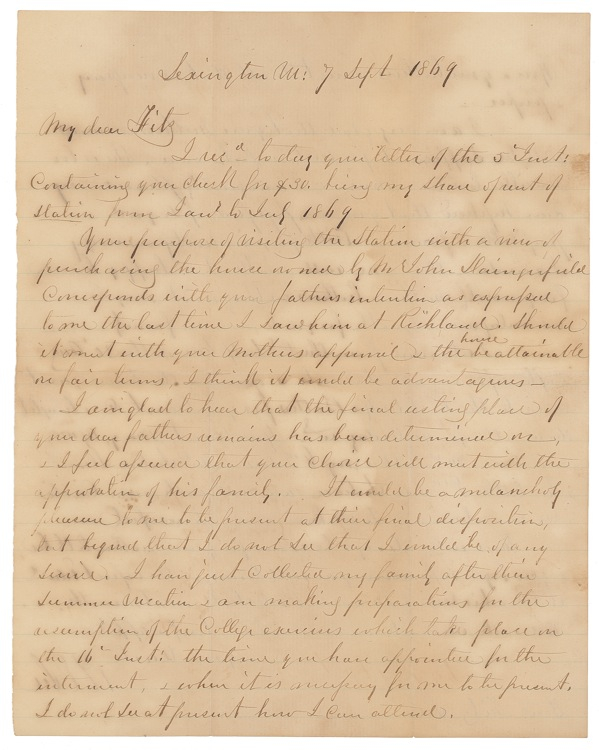 Lexington Va: 7 Sept 1869
My dear Fitz
I recd to day your letter of the 5 Inst:
Containing your check for $30. being my share of rent of
station from Jany to July 1869
Your purpose of visiting the Station with a view of
purchasing the house owned by Mr John Daingerfield
Corresponds with your fathers intention as expressed
to me the last time I saw him at Richland. Should
it meet with your Mothers approval & the house be attainable
on fair terms, I think it would be advantageous—
I am glad to hear that the final resting place of
your dear fathers remains has been determined on,
& I feel assured that your choice will meet with the
approbation of his family. . . It would be a melancholy
pleasure to me to be present at their final disposition,
but beyond that I do not see that I would be of any
service. I have just Collected my family after their
summer vacation & am making preparations for the
resumption of the College exercises which take place on
the 16 Inst: the time you have appointed for the
interment, & when it is necessary for me to be present.
I do not see at present how I can attend.